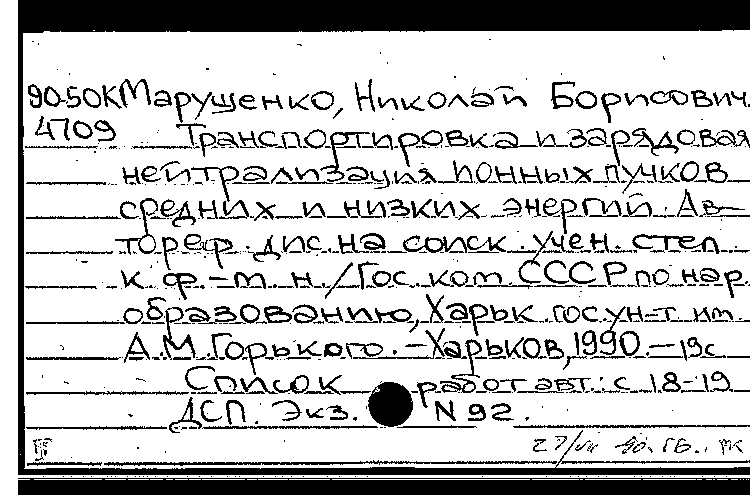 90-50К Марущенко, Николай Борисович.
4709 Транспортировка и зарядовая
нейтрализация ионных пучков
средних и низких энергий. Ав-
тореф. дис. на соиск. учен. степ.
к. ф.-м. н. / Гос. ком. СССР по нар.
образованию, Харьк. гос. ун-т им.
А. М. Горького. - Харьков, 1990. - 19с
Список работ авт.: с 18-19
ДСП. Экз. N 92.
27/VII 90. ГБ.